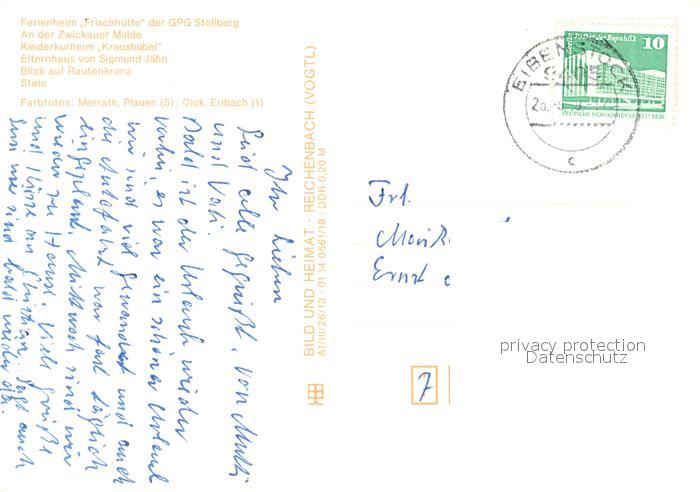 Ferienheim „Frischhütte" der GPG Stollberg
An der Zwickauer Mulde
Kinderkurheim „Kraushübel"
Elternhaus von Sigmund Jähn
Blick auf Rautenkranz
Stele
Farbfotos: Merrath, Plauen (5); Dick, Erlbach (1)
Ihr Lieben
Seid alle gegrüßt, von Mutti
und Vati.
Bald ist der Urlaub wieder
vorbei, es war ein schöner Urlaub
wir sind viel gewandert und auch
die Autofahrt war fast täglich
eingeplant. Mittwoch sind wir
wieder zu Hause. Viele Grüße
und Küsse an Christian, sagt auch
wir sind bald wieder da.
BILD UND HEIMAT · REICHENBACH (VOGTL)
A1/III/26/13 · 01 14 0561/18 · DDR 0,20 M
Berlin Palast der Republik
10
DEUTSCHE DEMOKRATISCHE REPUBLIK
EIBENSTOCK
c
Frl.
Ernst
7
privacy protection
Datenschutz